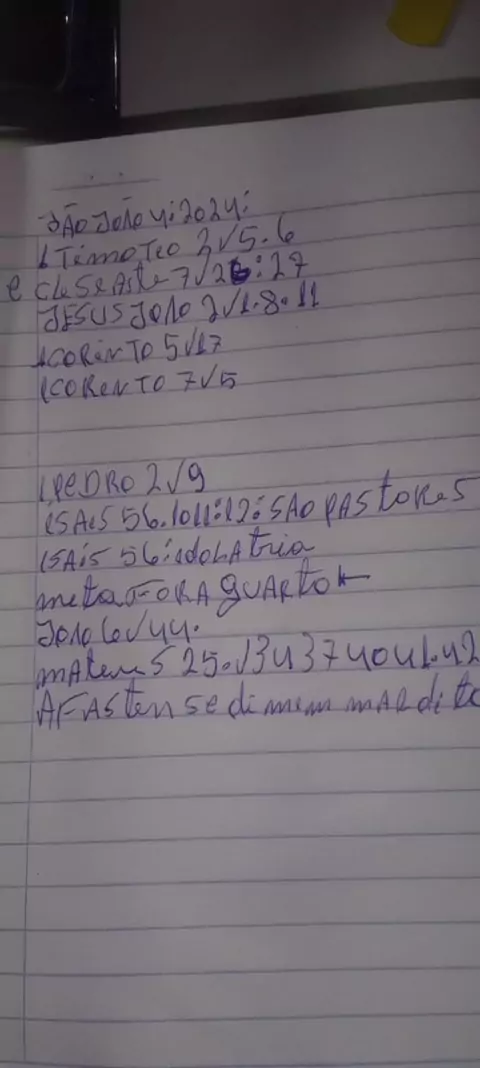 SÃO JOÃO 4:2024:
1 TimoTeo 2√5.6
e cleseAste 7√26:27
JESUS JOÃO 2√1.8.11
1CORiNTO 5√17
1CORENTO 7√5
1PEDRO 2√9
iSAiS 56.1011:12: SAO PAStoReS
iSAiS 56: idoLAtria
metaFORA guARto
JOÃO 6√44.
mAteus 25.√34 37 40 41.42
AFASten se di mim mALdito